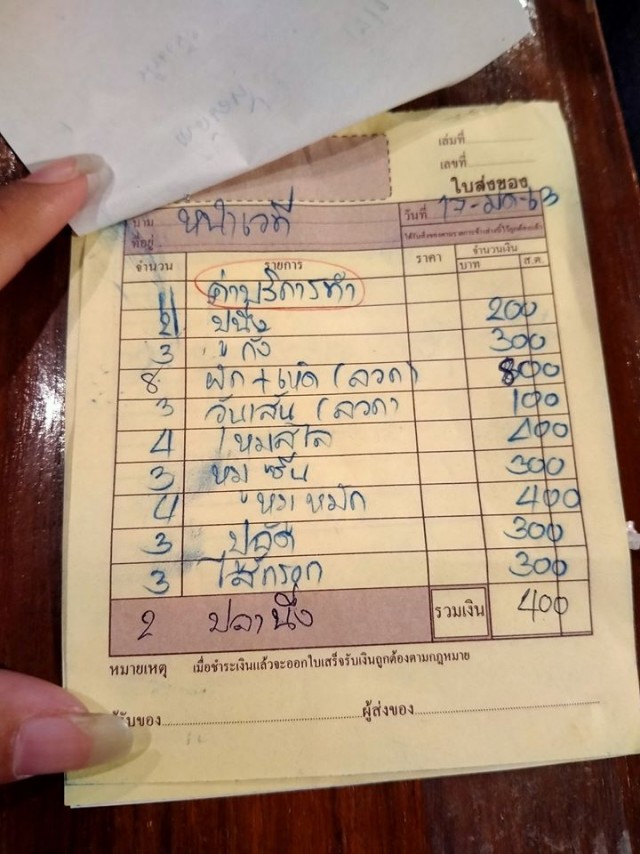 เล่มที่
เลขที่
ใบส่งของ
นาม หน้าเวที วันที่ 17-มค-63
ที่อยู่
จำนวน รายการ ราคา จำนวนเงิน
บาท ส.ต.
ค่าบริการทำ
2 ปูนึ่ง 200
3 กุ้ง 300
8 ผัก+เห็ด (ลวก) 800
3 วุ้นเส้น (ลวก) 100
4 400
3 หมูชิ้น 300
4 หมูหมัก 400
3 ปูอัด 300
3 ไส้กรอก 300
2 ปลานึ่ง รวมเงิน 400
หมายเหตุ เมื่อชำระเงินแล้วจะออกใบเสร็จรับเงินถูกต้องตามกฎหมาย
ผู้รับของ ผู้ส่งของ